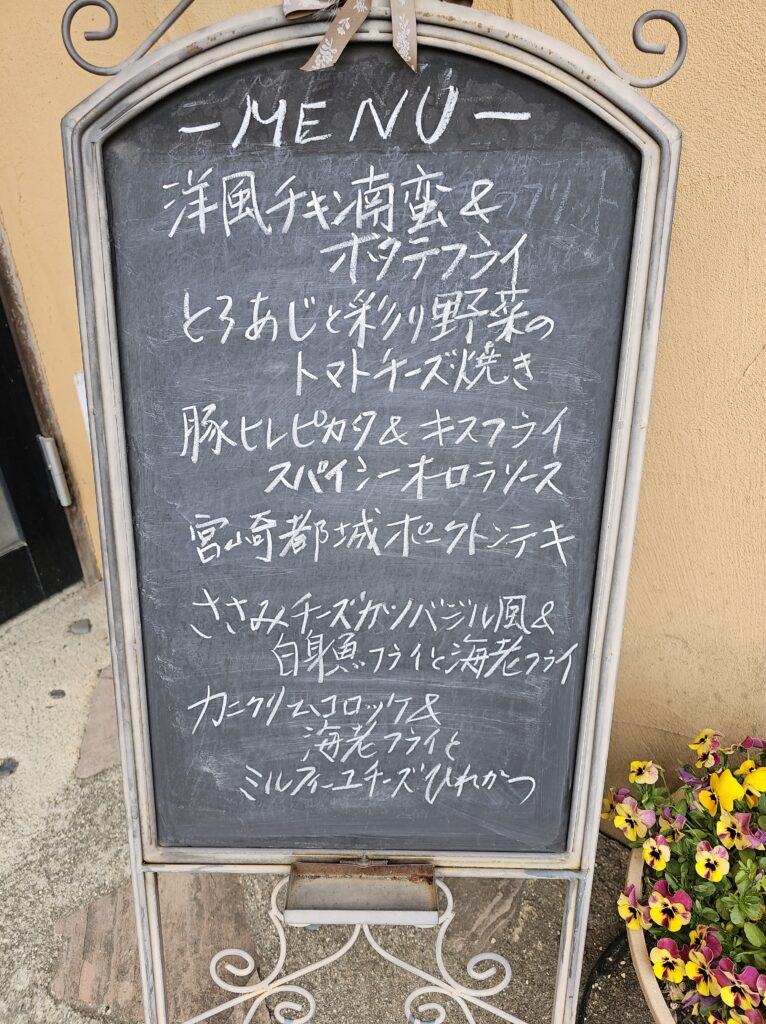 ーMENUー
洋風チキン南蛮&
ホタテフライ
とろあじと彩り野菜の
トマトチーズ焼き
豚ヒレピカタ&キスフライ
スパイシーオーロラソース
宮崎都城ポークトンテキ
ささみチーズカツバジル風&
白身魚フライと海老フライ
カニクリームコロッケ&
海老フライと
ミルフィーユチーズひれかつ